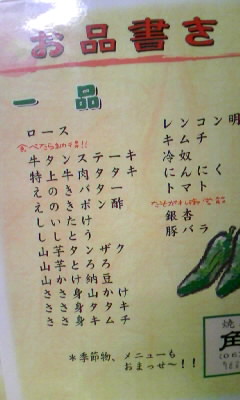 お品書き
一品
ロース
食べたら納得!!
牛タンステーキ
特上牛肉タタキ
えのきバター
えのきポン酢
しいたけ
ししとう
山芋タンザク
山芋とろろ
山かけ納豆
ささ身山かけ
ささ身タタキ
ささ身キムチ
レンコン明
キムチ
冷奴
にんにく
トマト
銀杏
豚バラ
*季節物、メニューも
おまっせ〜!!
焼
角